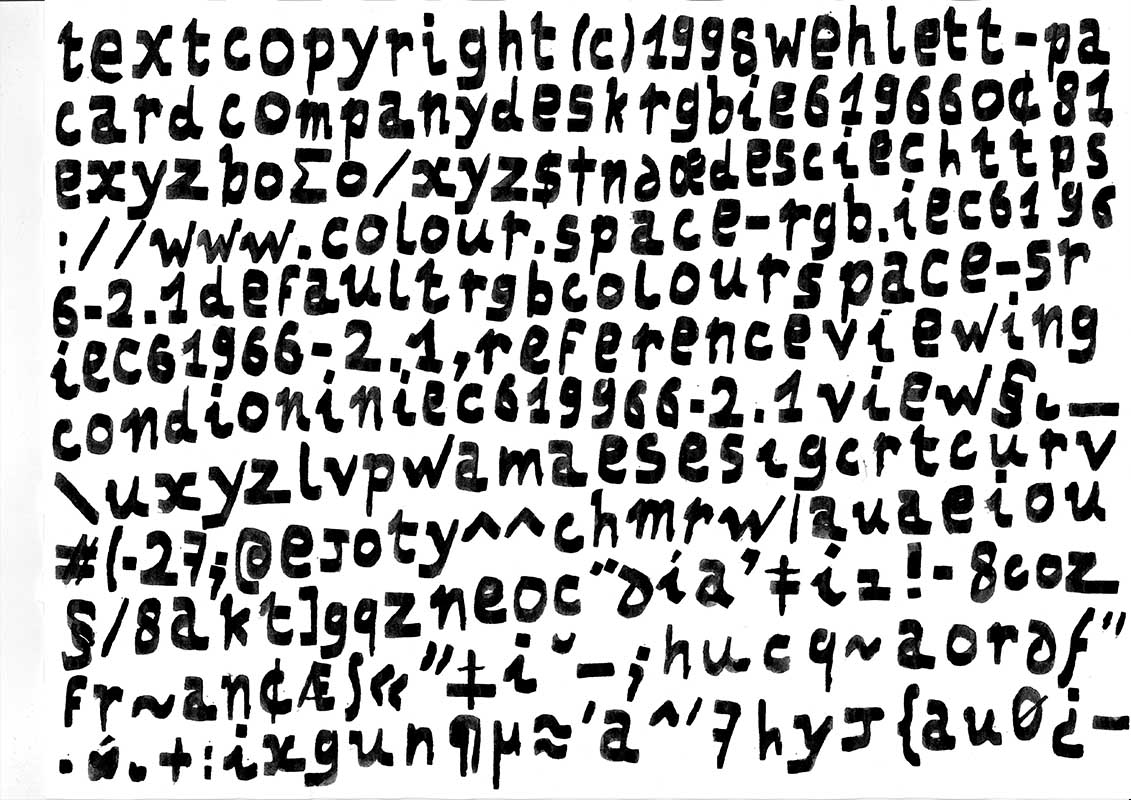 textcopyright(c)1998wehlett-pa
cardcompanydeskrgbie619660¢81
exyzboΣo/xyz$†n∂œdesciechttps
://www.colour.space-rgb.iec6196
6-2.1defaultrgbcolourspace-sr
iec61966-2.1,referenceviewing
condioniniec619966-2.1view§._
\uxyzlvpwamaesesigcrtcurv
#(-27;@eJoty^^chmrw/auaeiou
§/8akt]gqzneoc"∂ia'‡i=!-8coz
fr~an¢Æ∫«"‡iˇ–;hucq~aor∂f"
.ó.+:ixgun¶µ≈'a^'7hyJ{auØ¿-